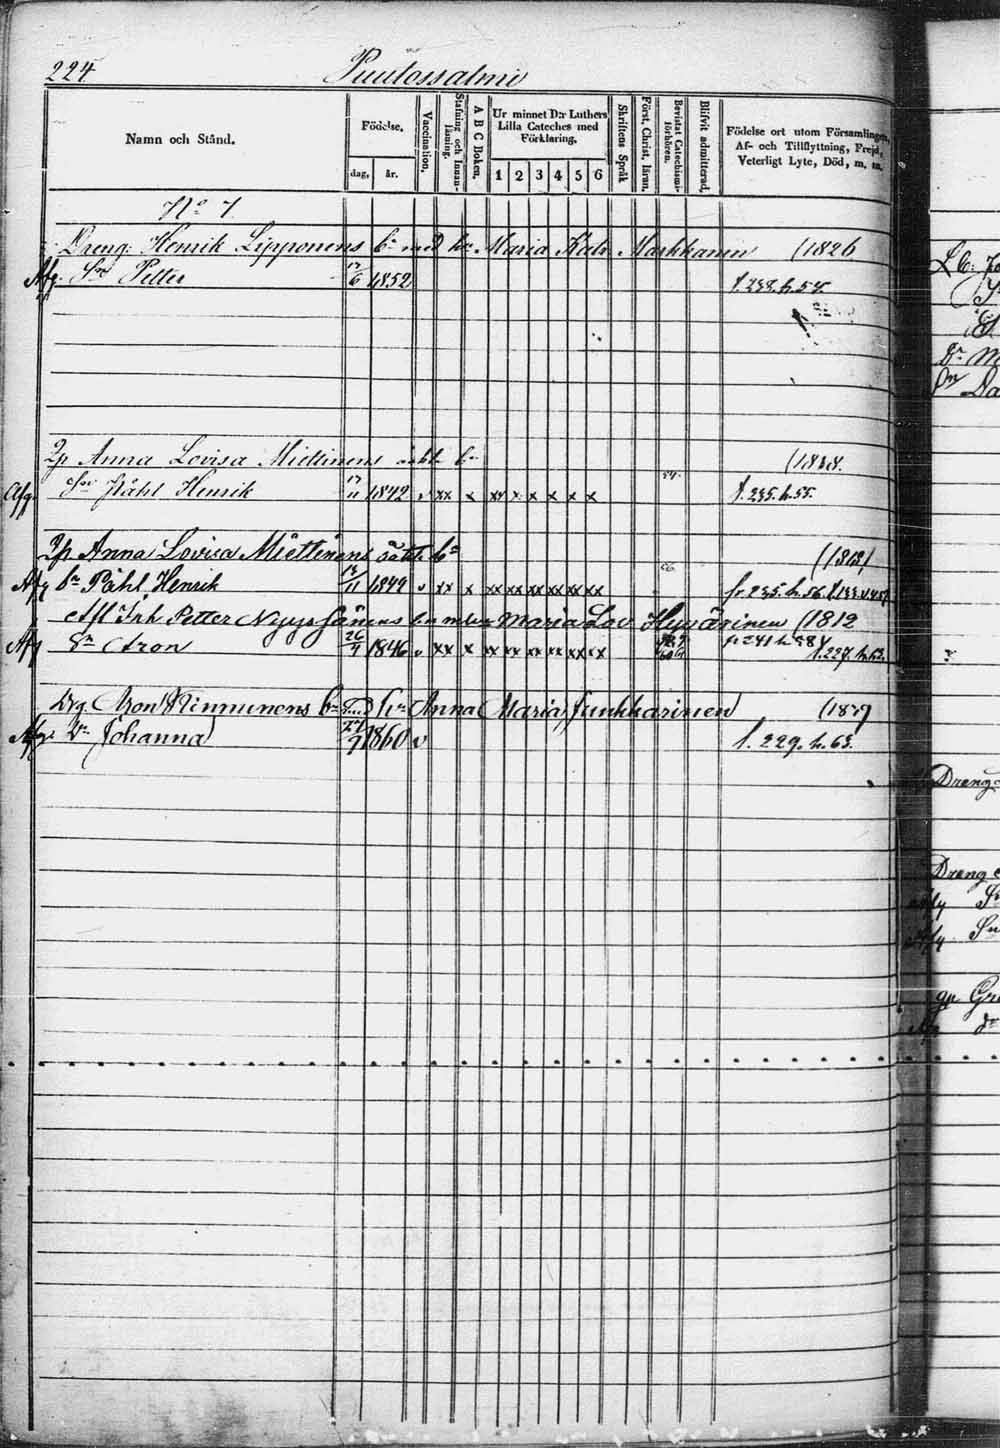 224 Puulossalmi
Namn och Stånd.
Födelse.
dag. år.
Vaccination.
Stafning och Innan-läsning.
A B C Boken.
Ur minnet D:r Luthers Lilla Cateches med Förklaring.
1 2 3 4 5 6
Skriftens Språk
Först. Christ. läran.
Bevistat Catechismi-förhören.
Blifvit admitterad.
Födelse ort utom Församlingen, Af- och Tillflyttning, Frejd, Veterligt Lyte, Död, m. m.
No 7
Dreng: Henrik Lipponens bn med hu Maria Katr Markkanen (1826
Afg. Sn Petter 17/6 1852 f. 238. h. 54.
Ip Anna Lovisa Miettinens oäkta bn
Afg. Sn Påhl Henrik 17/11 1842 v xx x xx x x x x x 54. f. 235. h. 55.
Ip Anna Lovisa Miettinens oäkt. bn (1818)
Afg bn Påhl Henrik 13/11 1842 v xx x xx xx xx xx xx xx 56. fr. 235. h. 56.
Afl Inh Petter Nyyssönens bn m hu Maria Lov Hyvärinen (1812
Afg Sn Aron 26/4 1846 v xx x xx xx xx xx xx xx fr 241 h 58 f. 227. h. 62.
Drg. Aron Kinnunens bn med hu Anna Maria Junkkarinen (1837)
Afg. Dr Johanna 1860 v f. 229. h. 63.
Dreng
Dreng
Afg
Afg Sn